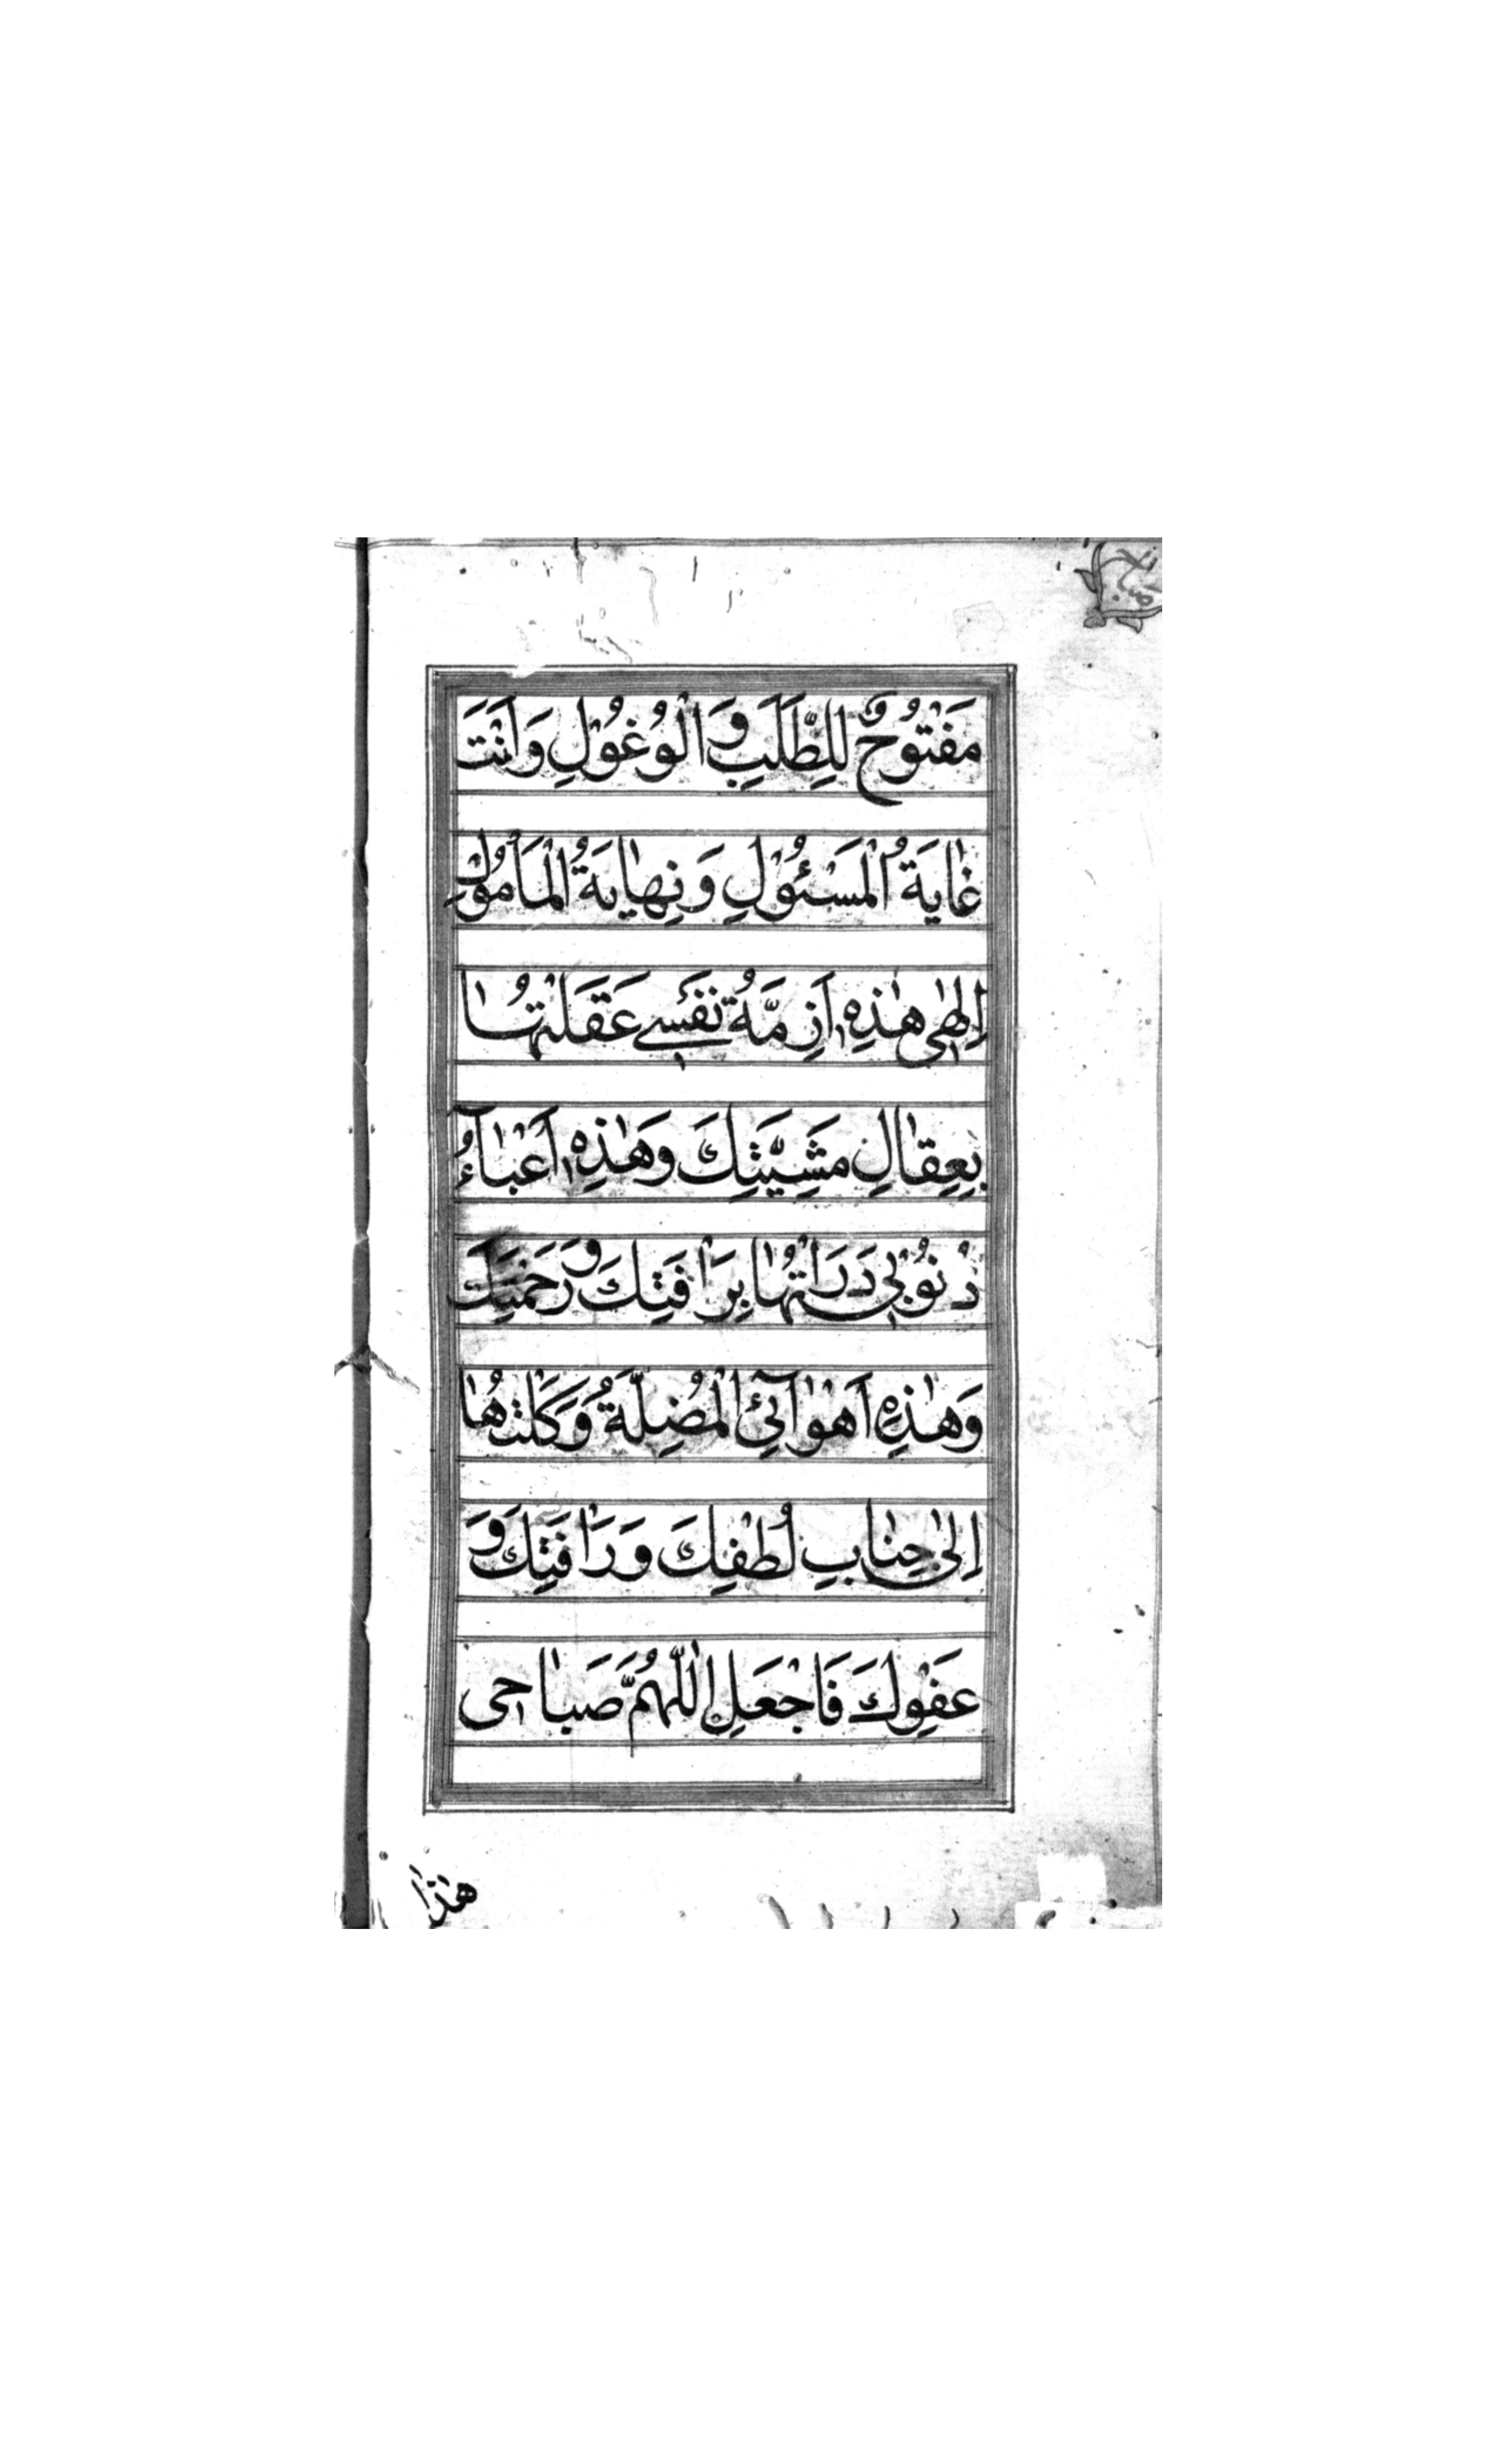 مَفْتُوحٌ لِلطَّلَبِ وَالْوُغُوْلِ وَاَنْتَ
غٰايَةُ الْمَسْئُوْلِ وَنِهٰايَةُ الْمَاْمُوْلِ
اِلٰهٰى هٰذِهٖ اَزِمَّةُ نَفْسٖى عَقَلْتُهٰا
بِعِقٰالِ مَشِيَّتِكَ وَهٰذِهٖ اَعْبٰآءُ
ذُنُوْبٖى دَرَاْتُهٰا بِرَاْفَتِكَ وَرَحْمَتِكَ
وَهٰذِهٖ اَهْوٰآئِىَ الْمُضِلَّةُ وَكَلْتُهٰا
اِلٰى جِنٰابِ لُطْفِكَ وَرَاْفَتِكَ وَ
عَفْوِكَ فَاجْعَلِ اللّٰهُمَّ صَبٰاحٖى
هٰذٰا